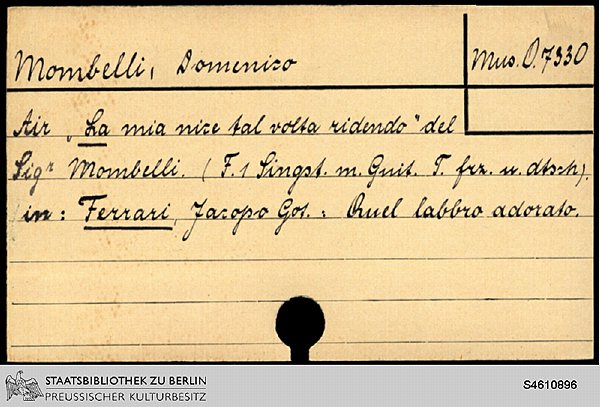 Mombelli, Domenico
Mus. O. 7330
Air „La mia nice tal volta ridendo" del
Sigr Mombelli. (F. 1 Singst. m. Guit. T. frz. u. dtsch).
in: Ferrari, Jacopo Got.: Quel labbro adorato.
STAATSBIBLIOTHEK ZU BERLIN
PREUSSISCHER KULTURBESITZ
S4610896